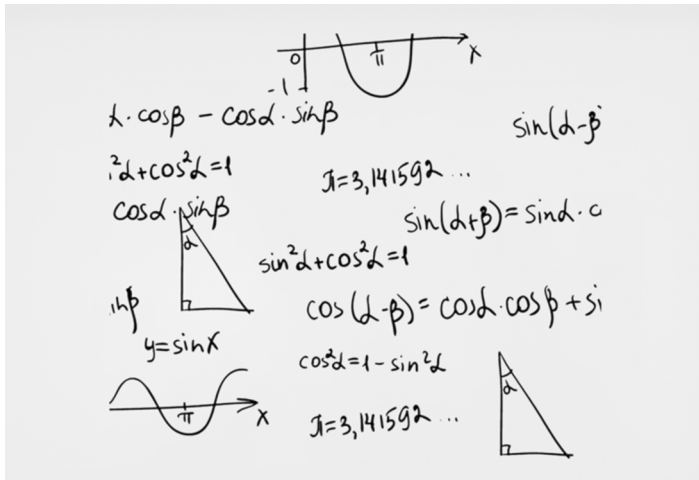 0
π
x
-1
α·cosβ - cosα·sinβ
sin(α-β
²α+cos²α=1
π=3,141592...
cosα·sinβ
sin(α+β)=sinα·c
α
sin²α+cos²α=1
inβ
cos(α-β)=cosα·cosβ+si
y=sinx
cos²α=1-sin²α
α
π
x
π=3,141592...